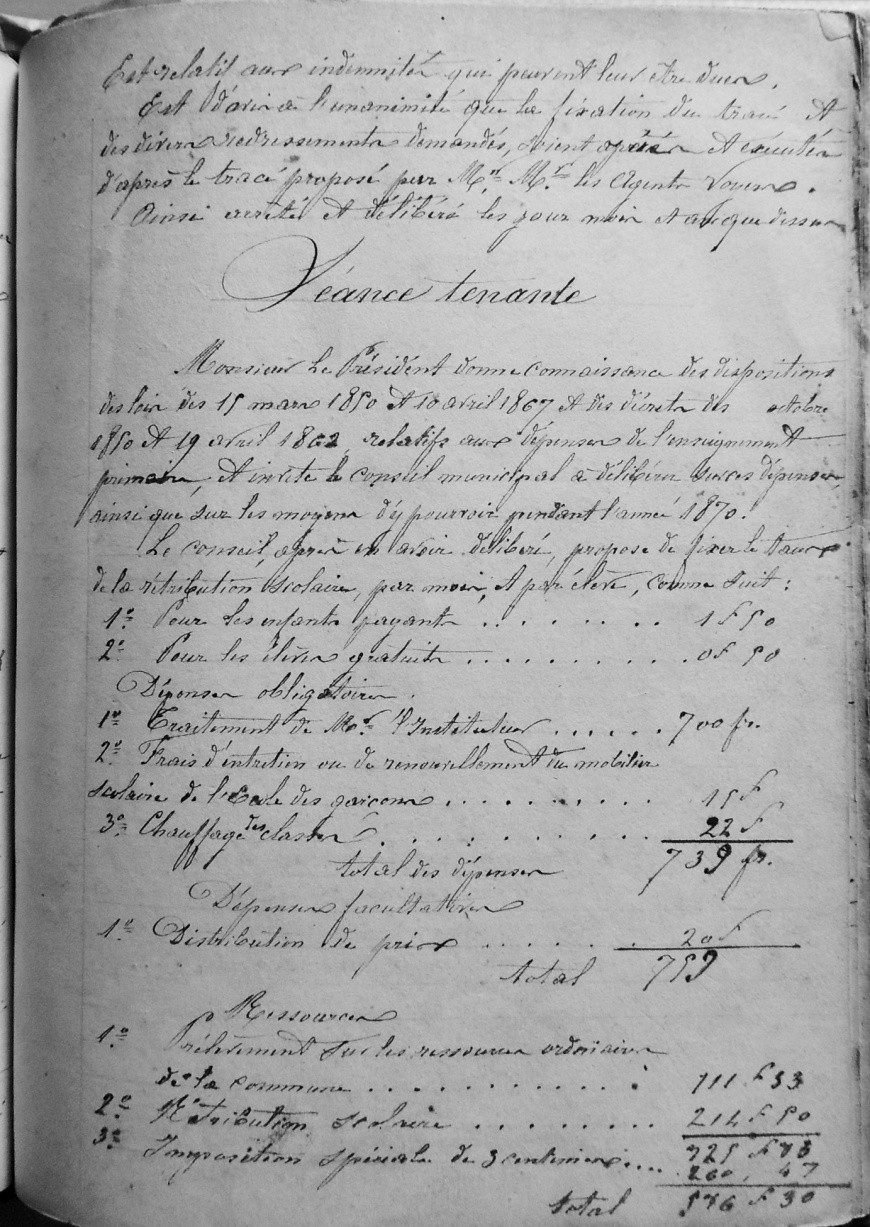 Est relatif aux indemnités qui peuvent leur être dues.
Est d'avis à l'unanimité que la fixation du tracé et
des divers redressements demandés, soient opérés et exécutés
d'après le tracé proposé par M.rs M.rs les Agents Voyers.
Ainsi arrêté et délibéré les jour mois et an que dessus
Séance tenante
Monsieur Le Président donne connaissance des dispositions
des lois des 15 mars 1850 et 10 avril 1867 et des décrets des octobre
1850 et 19 avril 1862, relatifs aux dépenses de l'enseignement
primaire, et invite le conseil municipal à délibérer sur ces dépenses
ainsi que sur les moyens d'y pourvoir pendant l'année 1870.
Le conseil, après en avoir délibéré, propose de fixer le taux
de la rétribution scolaire, par mois, et par élève, comme suit :
1.o Pour les enfants payants . . . . . . . . 1 f 50
2.o Pour les élèves gratuits . . . . . . . . . . 0 f 50
Dépenses obligatoires.
1.o Traitement de M.r l'Instituteur . . . . . . 700 fr.
2.o Frais d'entretien ou de renouvellement du mobilier
scolaire de l'École des garçons . . . . . . . . . . 15 f
3.o Chauffage des classes . . . . . . . . . . . 22 f
total des dépenses 739 fr.
Dépenses facultatives
1.o Distribution de prix . . . . . . 20 f
total 759
Ressources
1.o Prélèvement sur les ressources ordinaires
de la commune . . . . . . . . . . . 111 f 33
2.o Rétribution scolaire . . . . . . . . 214 f 50
3.o Imposition spéciale de 3 centimes . . . . 260, 47
total